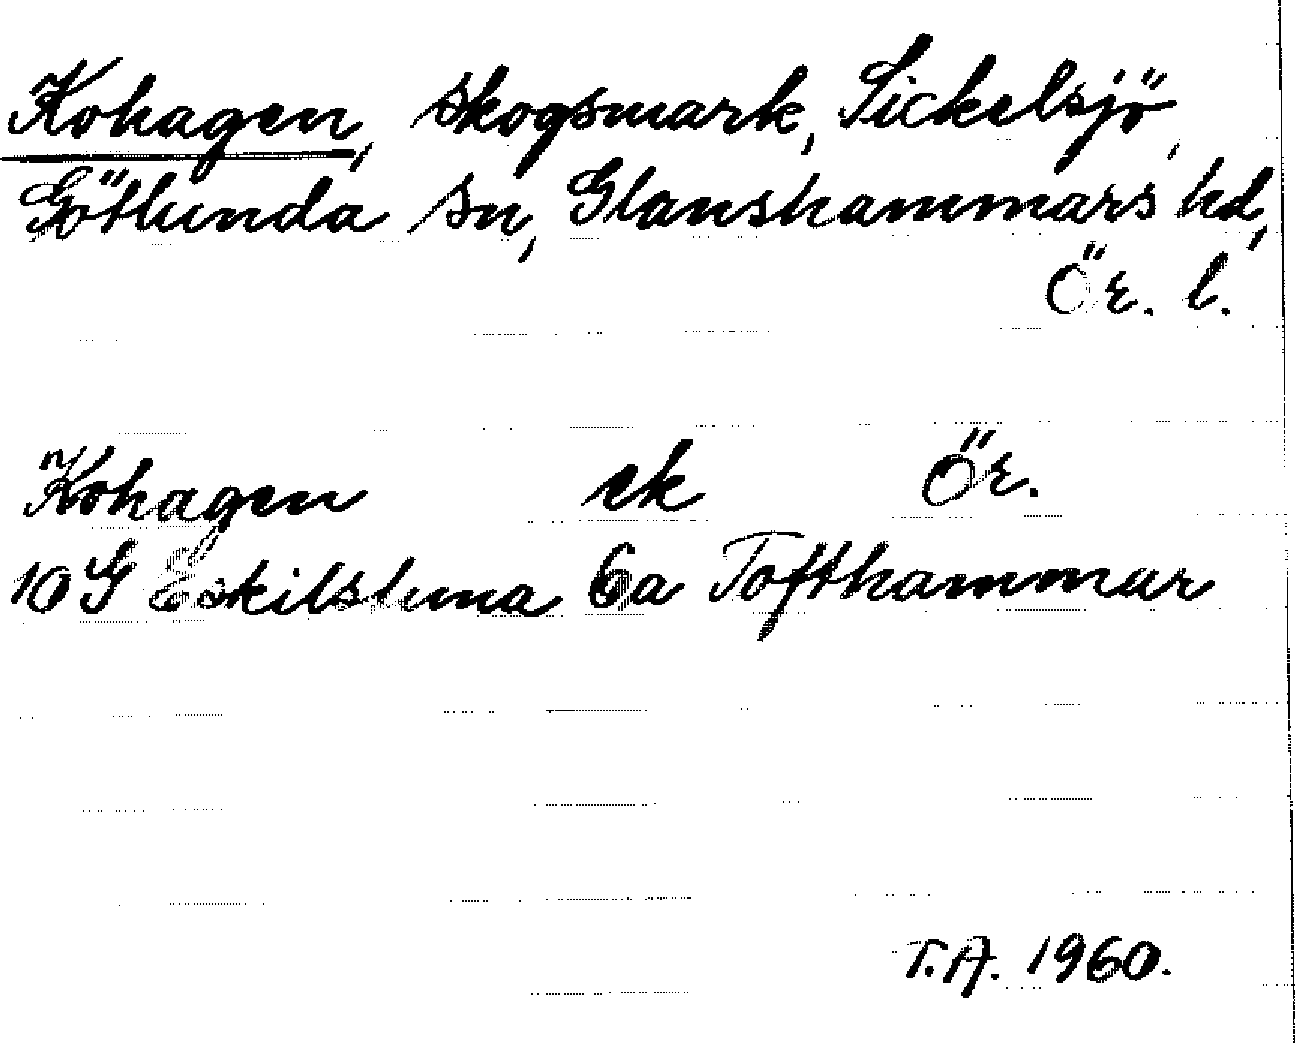 Kohagen, skogsmark, Sickelsjö,
Götlunda sn, Glanshammars hd,
Ör. l.
Kohagen ek Ör.
10 G Eskilstuna 6a Tofthammar
T.A. 1960.